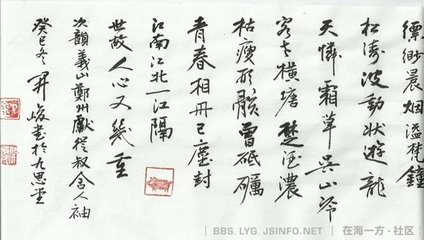 缥缈晨烟溢梵鐘
松涛波動狀遊龍
天憐霜草吴山冷
客去橫塘楚酒濃
枯瘦形骸曾砥礪
青春相冊已塵封
江南江北一江隔
世故人心又幾重
次韻義山鄭州獻從叔舍人袖
癸巳冬 書於九思堂
BBS. LYG. JSINFO.NET | 在海一方·社区